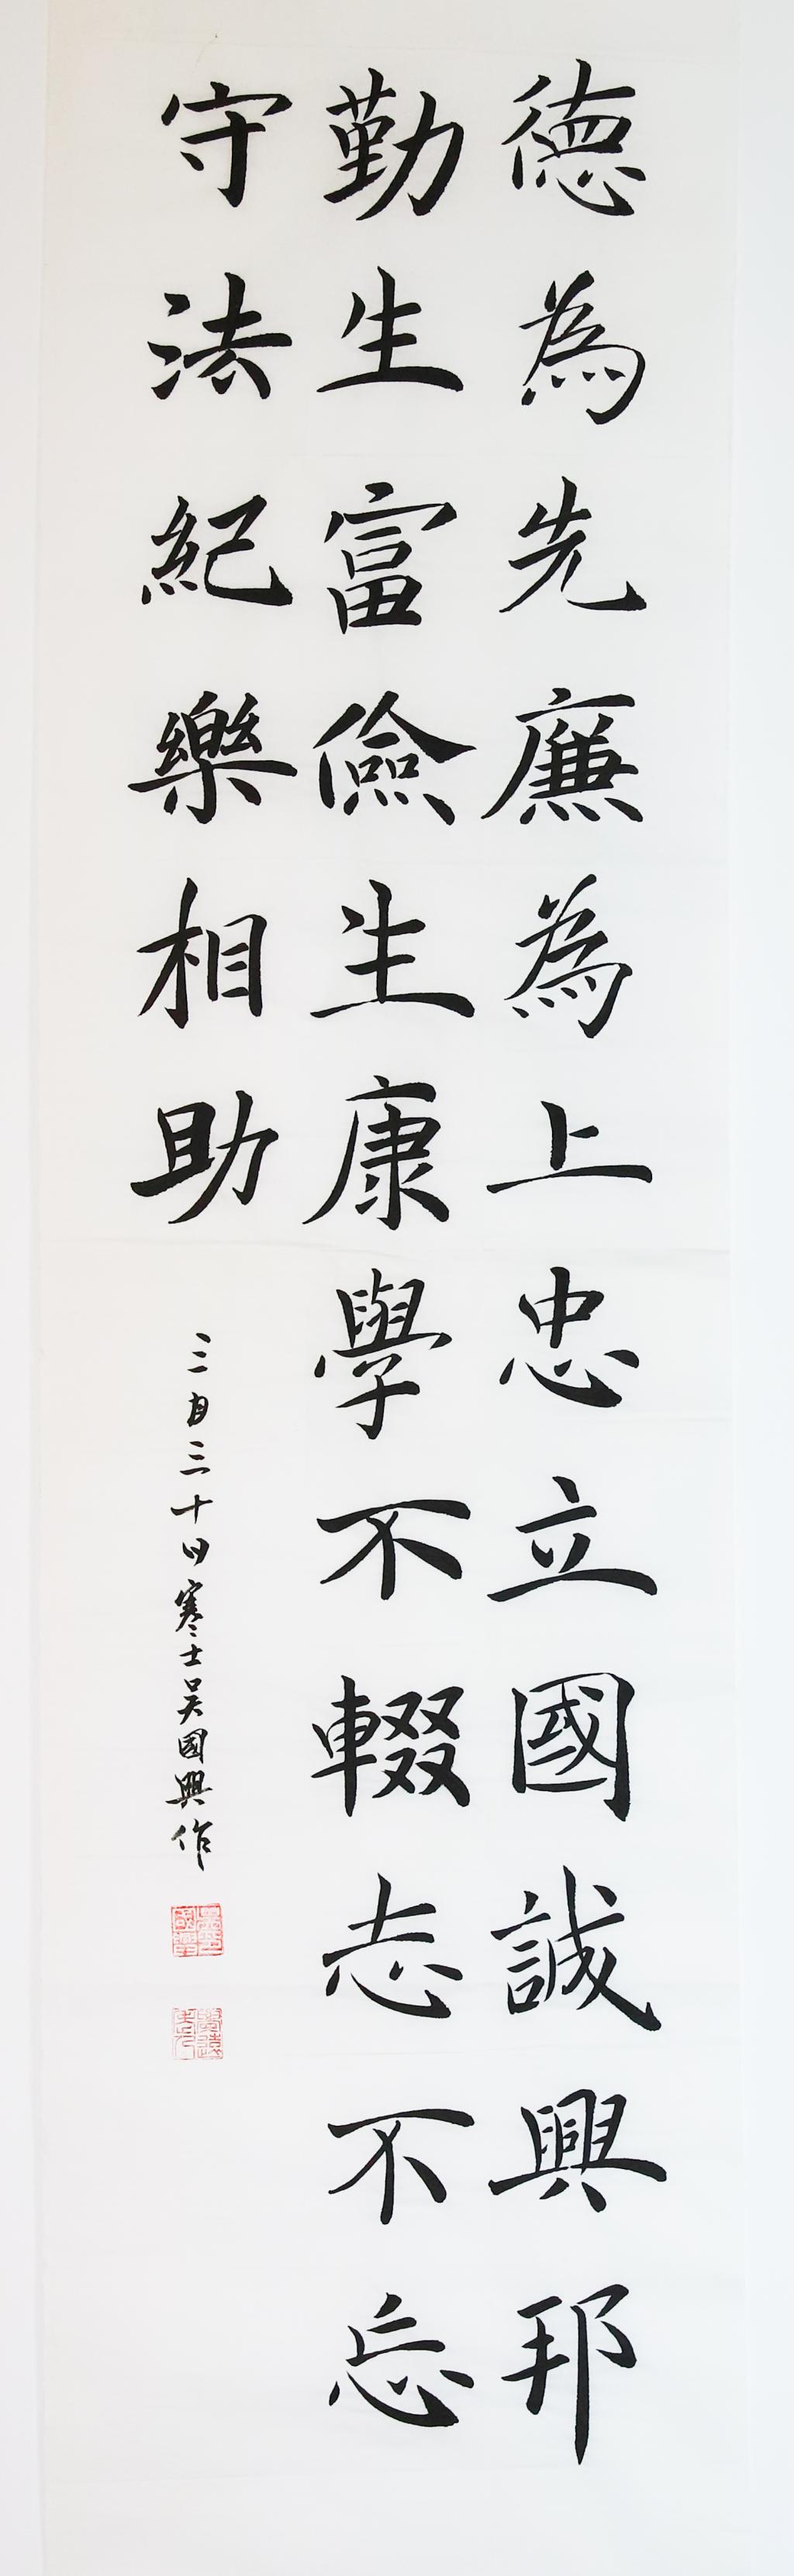 德為先廉為上忠立國誠興邦
勤生富儉生康學不輟志不忘
守法紀樂相助
三月三十日寒士吳國興作